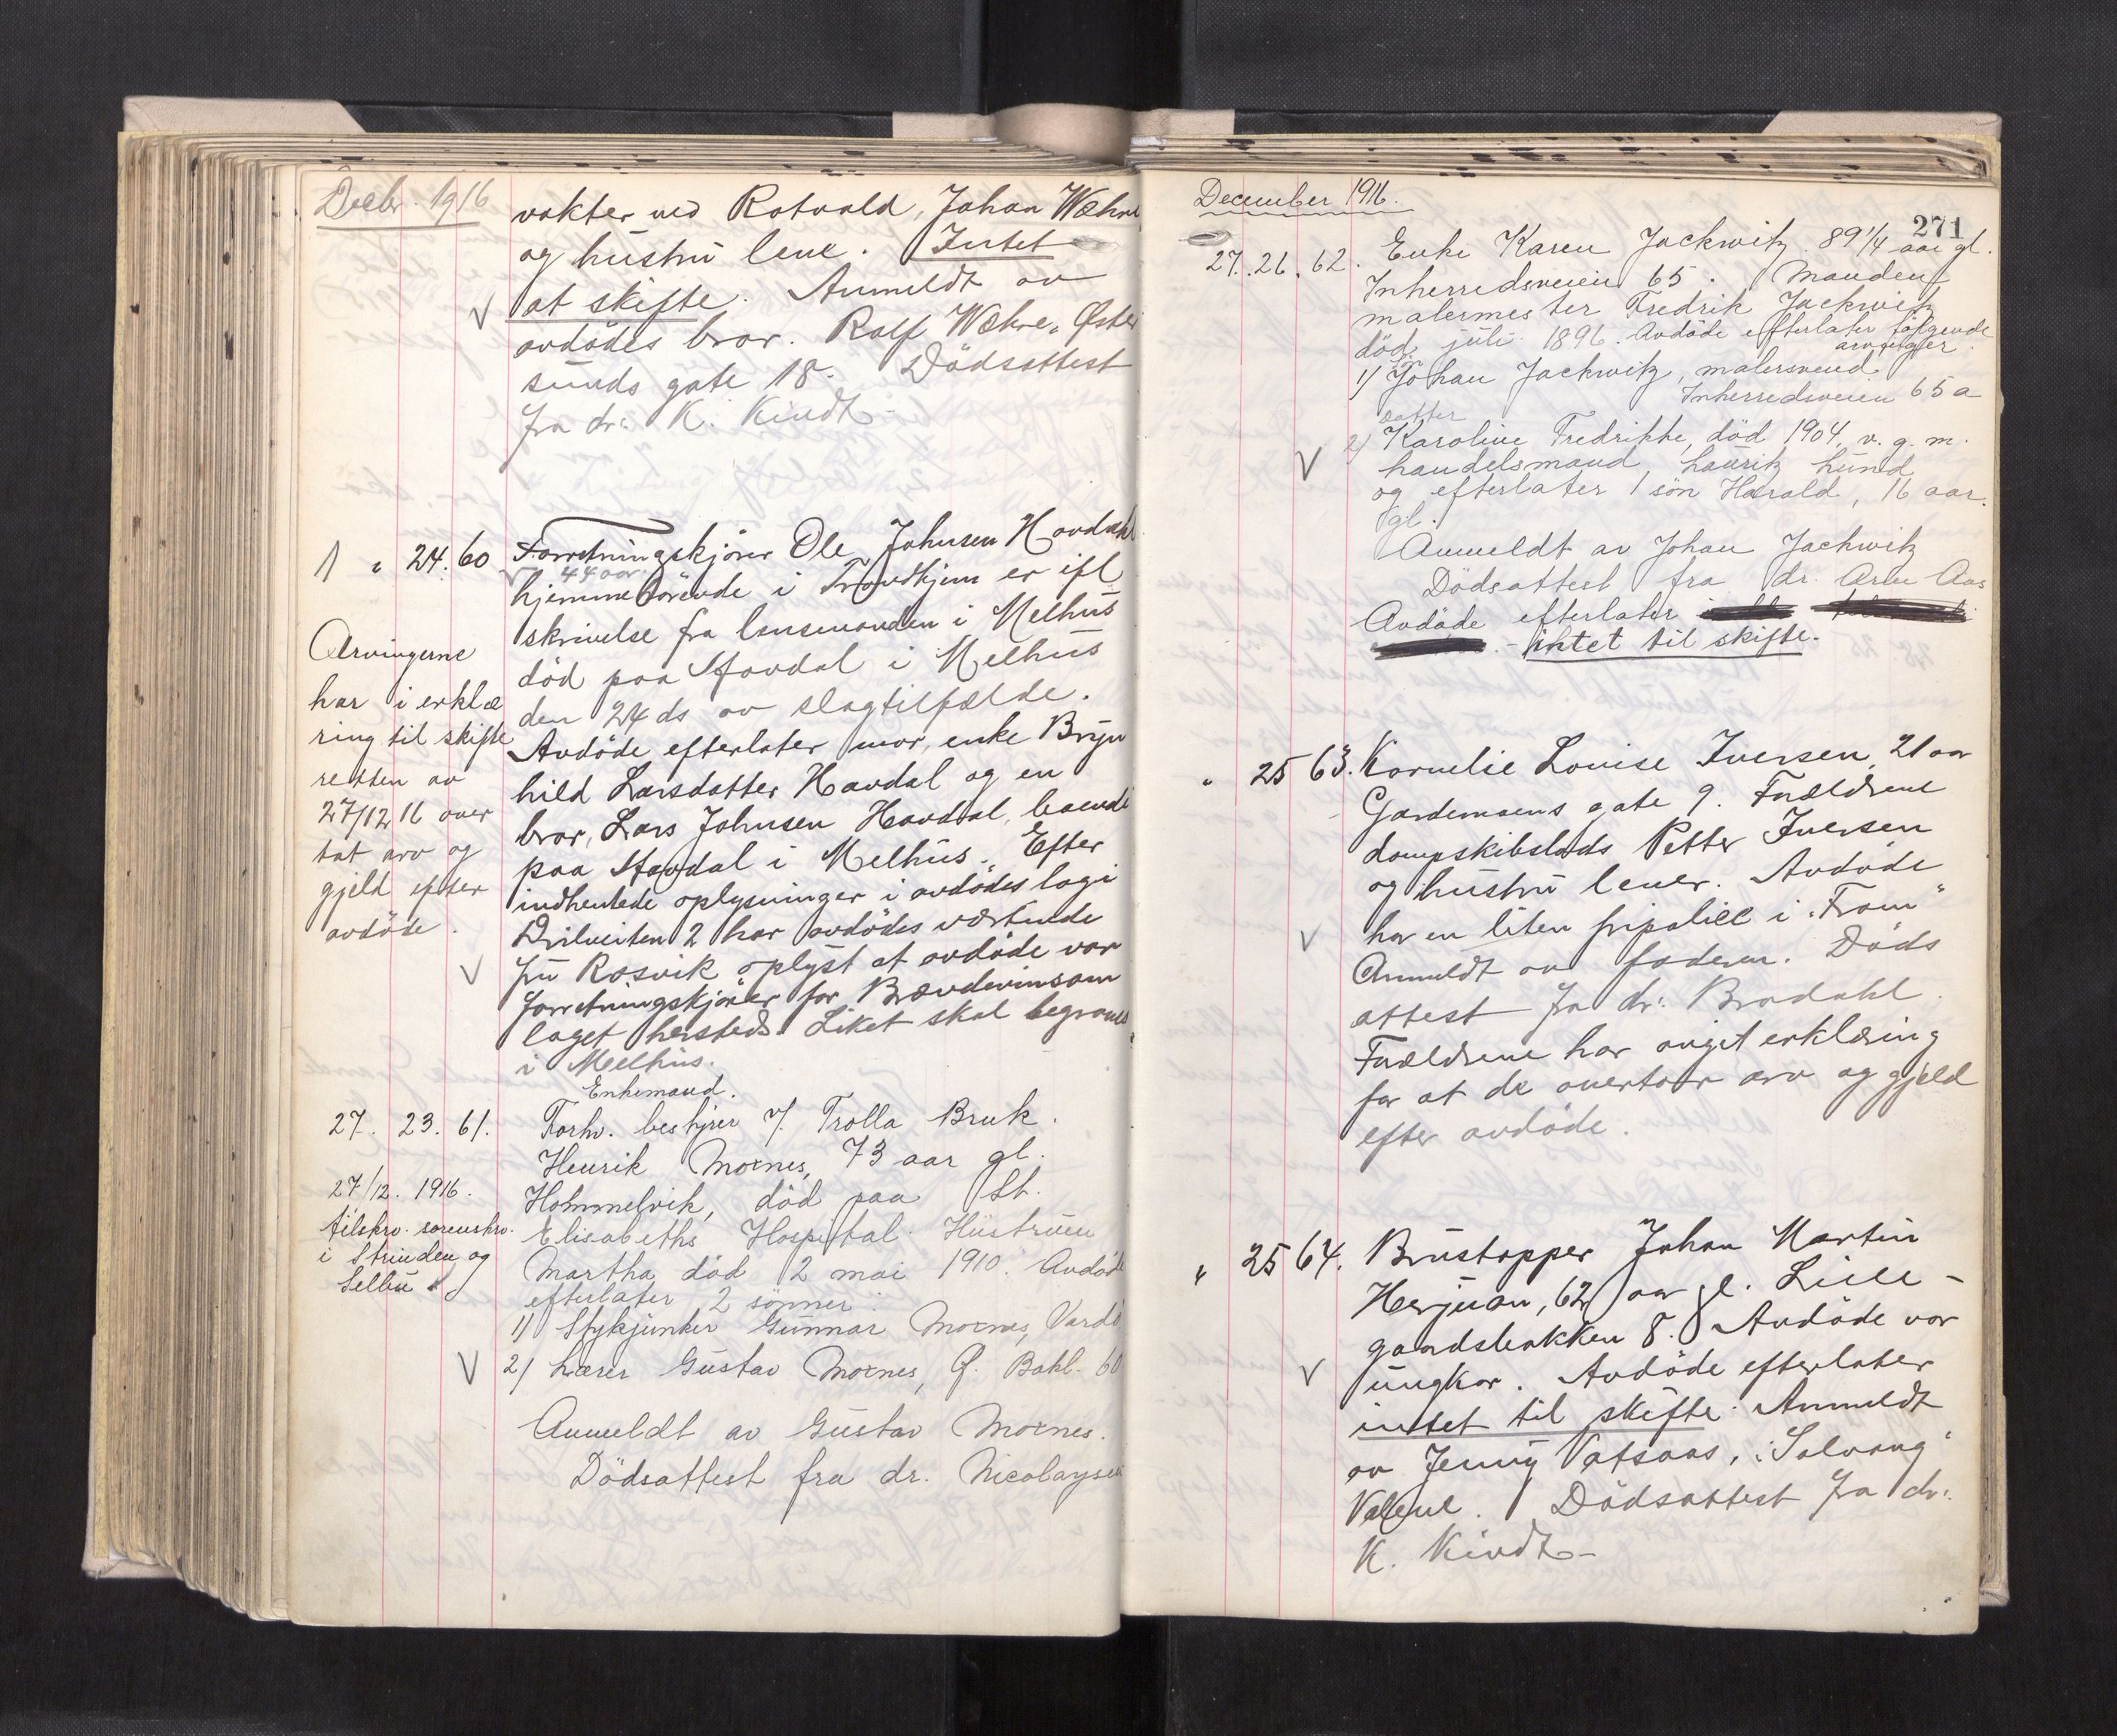 Decbr. 1916
vokter ved Rotvold, Johan Wæhre
og hustru leve. Intet
at skifte. Anmeldt av
avdødes bror. Ralf Wæhre, Øster
sunds gate 18. Dödsattest
fra dr: K. Kindt
1 " 24. 60 Forretningskjører Ole Johnsen Havdal
44 aar
hjemmehörende i Trondhjem er ifl
skrivelse fra lensmanden i Melhus
död paa Havdal i Melhus
den 24 ds av slagtilfælde.
Avdöde efterlater mor, enke Bryn
hild Larsdatter Havdal og en
bror, Lars Johnsen Havdal, boende
paa Havdal i Melhus. Efter
indhentede oplysninger i avdödes logi
Prilveiten 2 har avdödes vertinde
fru Rosvik oplyst at avdöde var
forretningskjører for Brændevinsam
laget hersteds. Liket skal begraves
i Melhus.
Arvingerne
har i erklæ
ring til skifte
retten av
27/12 16 over
tat arv og
gjeld efter
avdöde.
Enkemand.
27. 23. 61. Forhv. bestyrer v/. Trolla Bruk.
Henrik Moxnes, 73 aar gl.
Hommelvik, död paa St.
Elisabeths Hospital. Hustruen
Martha död 2 mai 1910. Avdöde
efterlater 2 sönner:
1) Stykjunker Gunnar Moxnes, Vardö
2) Lærer Gustav Moxnes, Ø. Bakl. 60
Anmeldt av Gustav Moxnes.
Dödsattest fra dr. Nicolaysen
27/12. 1916.
tilskr. sorenskr.
i Strinden og
Selbu
December 1916.
271
27. 26. 62. Enke Karen Jackwitz. 89 1/4 aar gl.
Inherredsveien 65. Manden
malermester Fredrik Jackwitz
död juli 1896. Avdöde efterlater fölgende
arvinger.
1) Johan Jackwitz, malersvend
Inherredsveien 65 a
datter
2) Karoline Fredrikke, död 1904, v. g. m.
handelsmand, Lauritz Lund
og efterlater 1 sön Harald, 16 aar
gl.
Anmeldt av Johan Jackwitz
Dödsattest fra dr. Arne Aas
Avdöde efterlater
- intet til skifte.
" 25 63. Kornelie Louise Iversen, 21 aar
Gardemoens gate 9. Forældrene
dampskibslods Petter Iversen
og hustru lever. Avdöde
har en liten fripolice i "Fram"
Anmeldt av faderen. Döds
attest fra dr: Bradahl.
Forældrene har avgit erklæring
for at de overtar arv og gjeld
efter avdöde.
" 25 64. Brustapper Johan Martin
Herjuan, 62 aar gl. Lille-
gaardsbakken 8. Avdöde var
ungkar. Avdöde efterlater
intet til skifte. Anmeldt
av Jenny Vatsaas, "Solvang"
Valene. Dödsattest fra dr:
K. Kindt